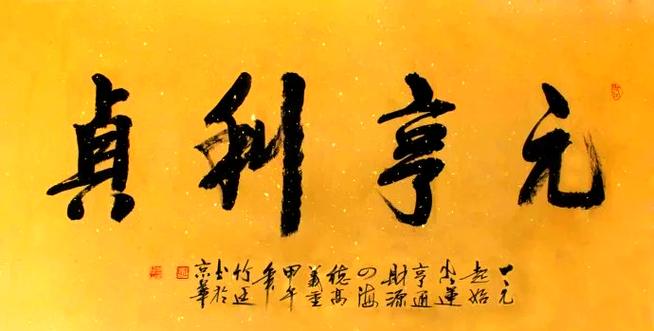 元亨利貞
一元
起始
運
亨通
財源
四海
德高
義重
甲午
年
竹
书於
京華